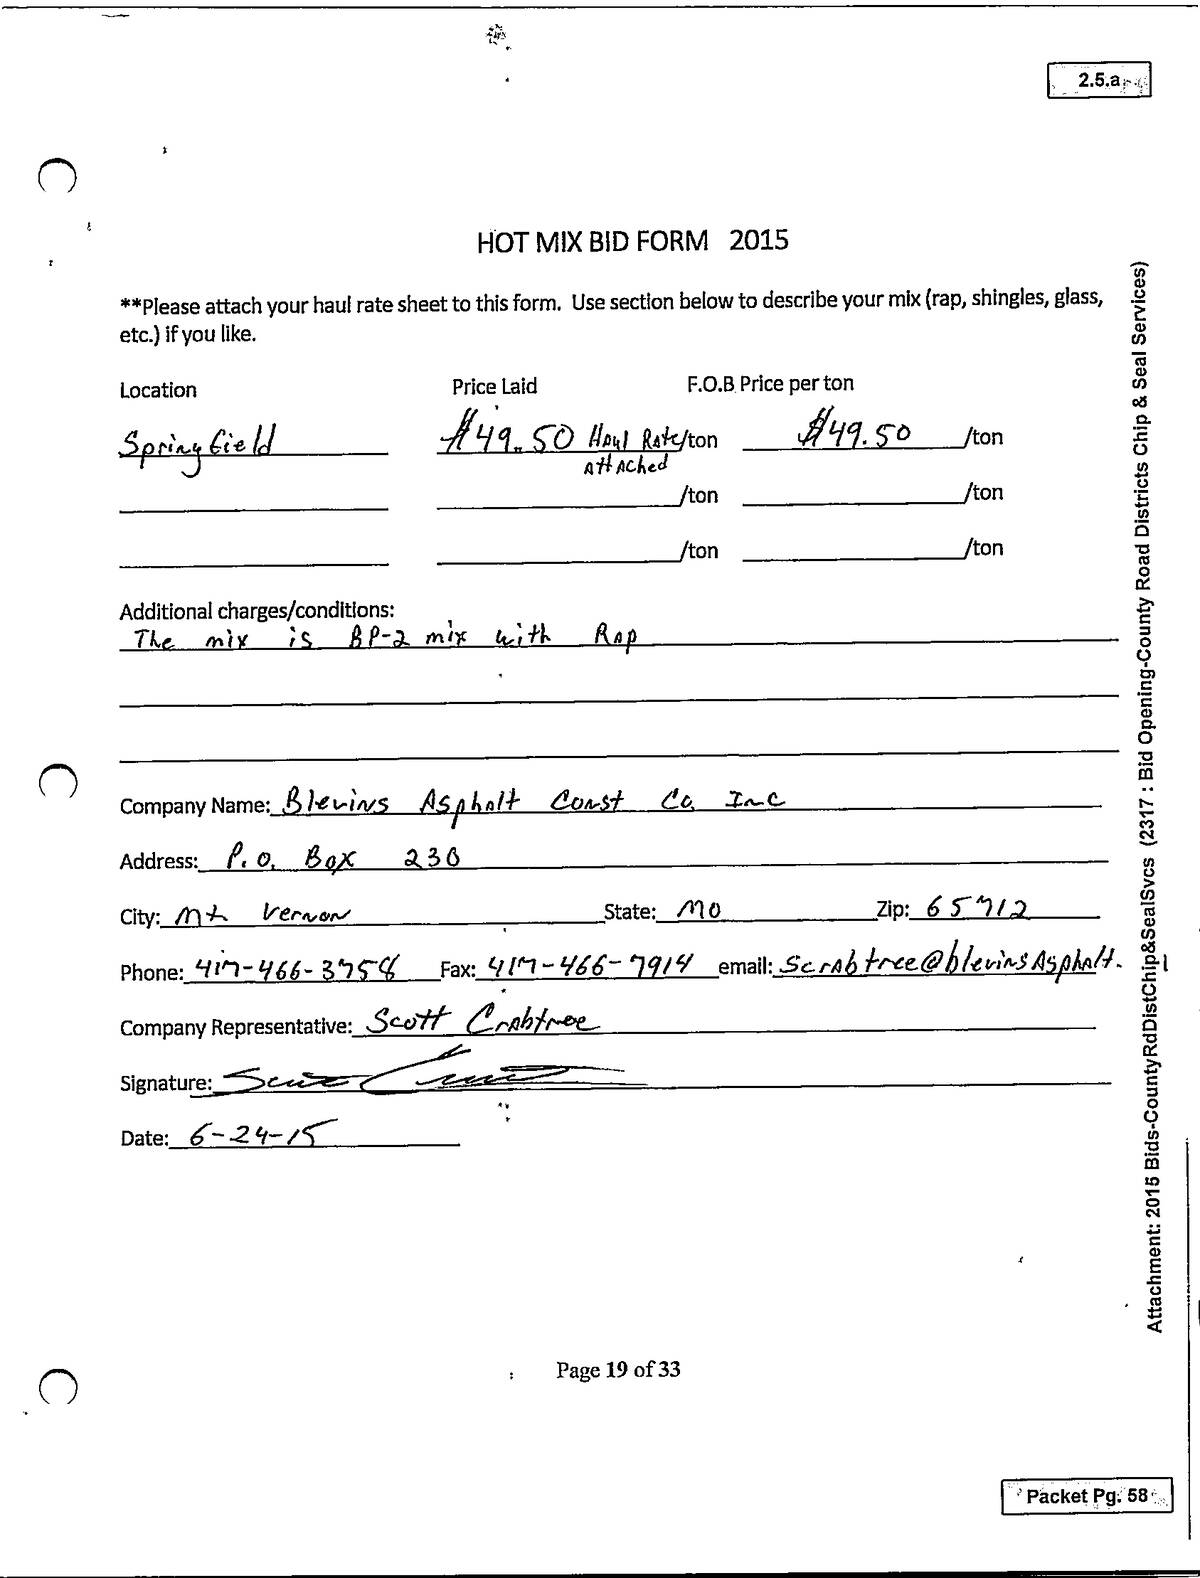 2.5.a
HOT MIX BID FORM 2015
**Please attach your haul rate sheet to this form. Use section below to describe your mix (rap, shingles, glass,
etc.) if you like.
Location Price Laid F.O.B. Price per ton
Springfield $49.50 Haul Rate/ton $49.50 /ton
Attached
/ton /ton
/ton /ton
Additional charges/conditions:
The mix is BP-2 mix with Rap
Company Name: Blevins Asphalt Const Co. Inc
Address: P.O. Box 230
City: Mt Vernon State: MO Zip: 65712
Phone: 417-466-3758 Fax: 417-466-7914 email: scrabtree@blevinsAsphalt.
Company Representative: Scott Crabtree
Signature: Scott Crabtree
Date: 6-24-15
Page 19 of 33
Packet Pg. 58
Attachment: 2015 Bids-CountyRdDistChip&SealSvcs (2317 : Bid Opening-County Road Districts Chip & Seal Services)